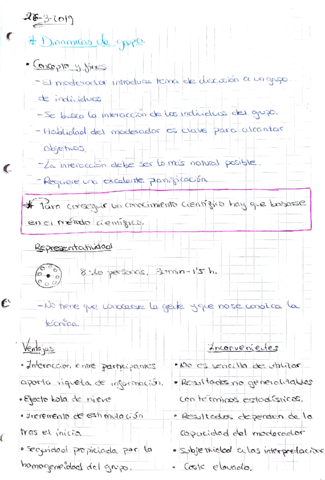 26-3-2019
* Dinámica de grupo
• Concepto y fines
- El moderador introduce tema de discusión a un grupo
de individuos
- Se busca la interacción de los individuos del grupo.
- Habilidad del moderador es clave para alcanzar
objetivos.
- La interacción debe ser lo más natural posible.
- Requiere una excelente planificación
* Para conseguir un conocimiento científico hay que basarse
en el método científico.
Representatividad
8-10 personas, 30min-1'5 h.
- No tiene que conocerse la gente y que no se conozca la
técnica.
Ventajas
• Interacción entre participantes
aporta riqueza de información.
• Efecto bola de nieve
• Incremento de estimulación
tras el inicio
• Seguridad propiciada por la
homogeneidad del grupo.
Inconvenientes
• No es sencilla de utilizar
• Resultados no generalizables
en términos estadísticos.
• Resultados dependen de la
capacidad del moderador
• Subjetividad a las interpretaciones
- Coste elevado.